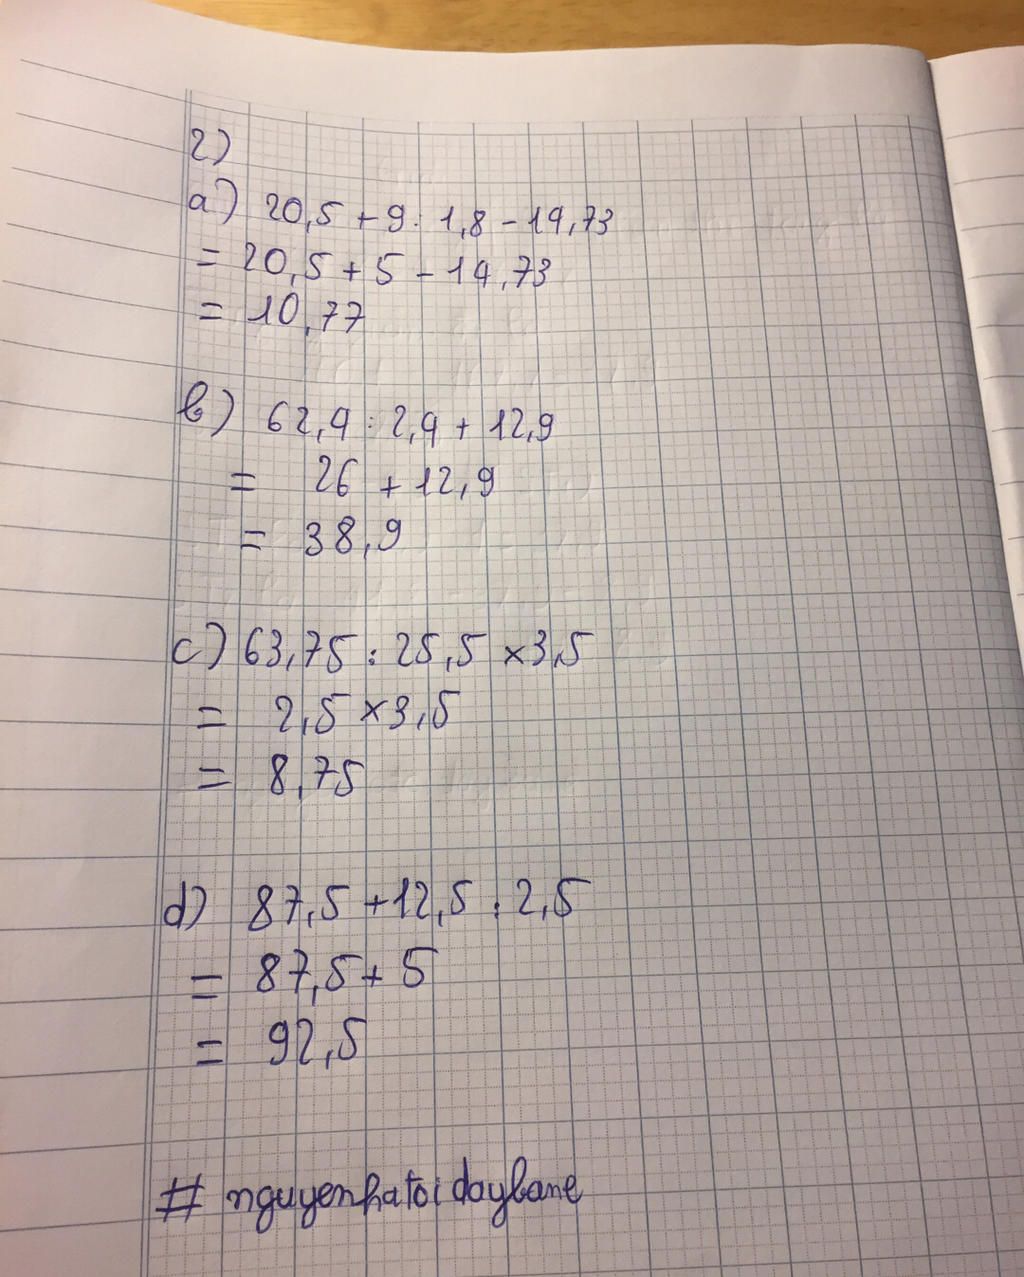 2)
a) 20,5 + 9 : 1,8 - 14,73
= 20,5 + 5 - 14,73
= 10,77
b) 62,4 : 2,4 + 12,9
= 26 + 12,9
= 38,9
c) 63,75 : 25,5 × 3,5
= 2,5 × 3,5
= 8,75
d) 87,5 + 12,5 : 2,5
= 87,5 + 5
= 92,5
# nguyenhatoidaybane